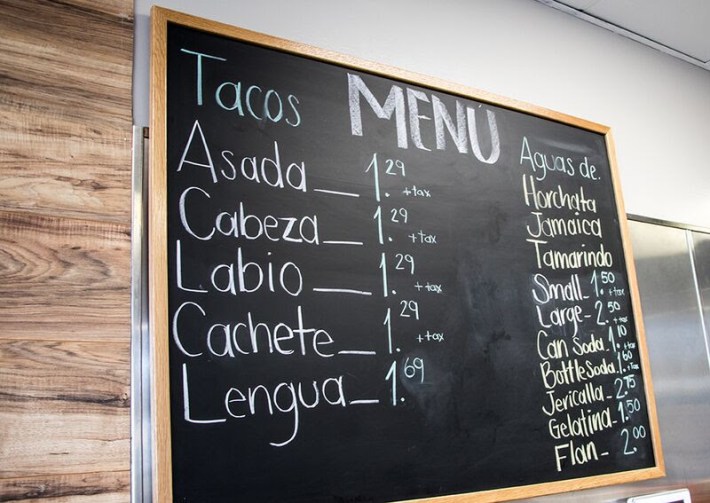 MENÚ
Tacos
Asada 1.29 +tax
Cabeza 1.29 +tax
Labio 1.29 +tax
Cachete 1.29 +tax
Lengua 1.69
Aguas de:
Horchata
Jamaica
Tamarindo
Small 1.50 +tax
Large 2.50 +tax
Can Soda 1.10
Bottle Soda 1.60 +tax
Jericalla 2.75
Gelatina 1.50
Flan 2.00